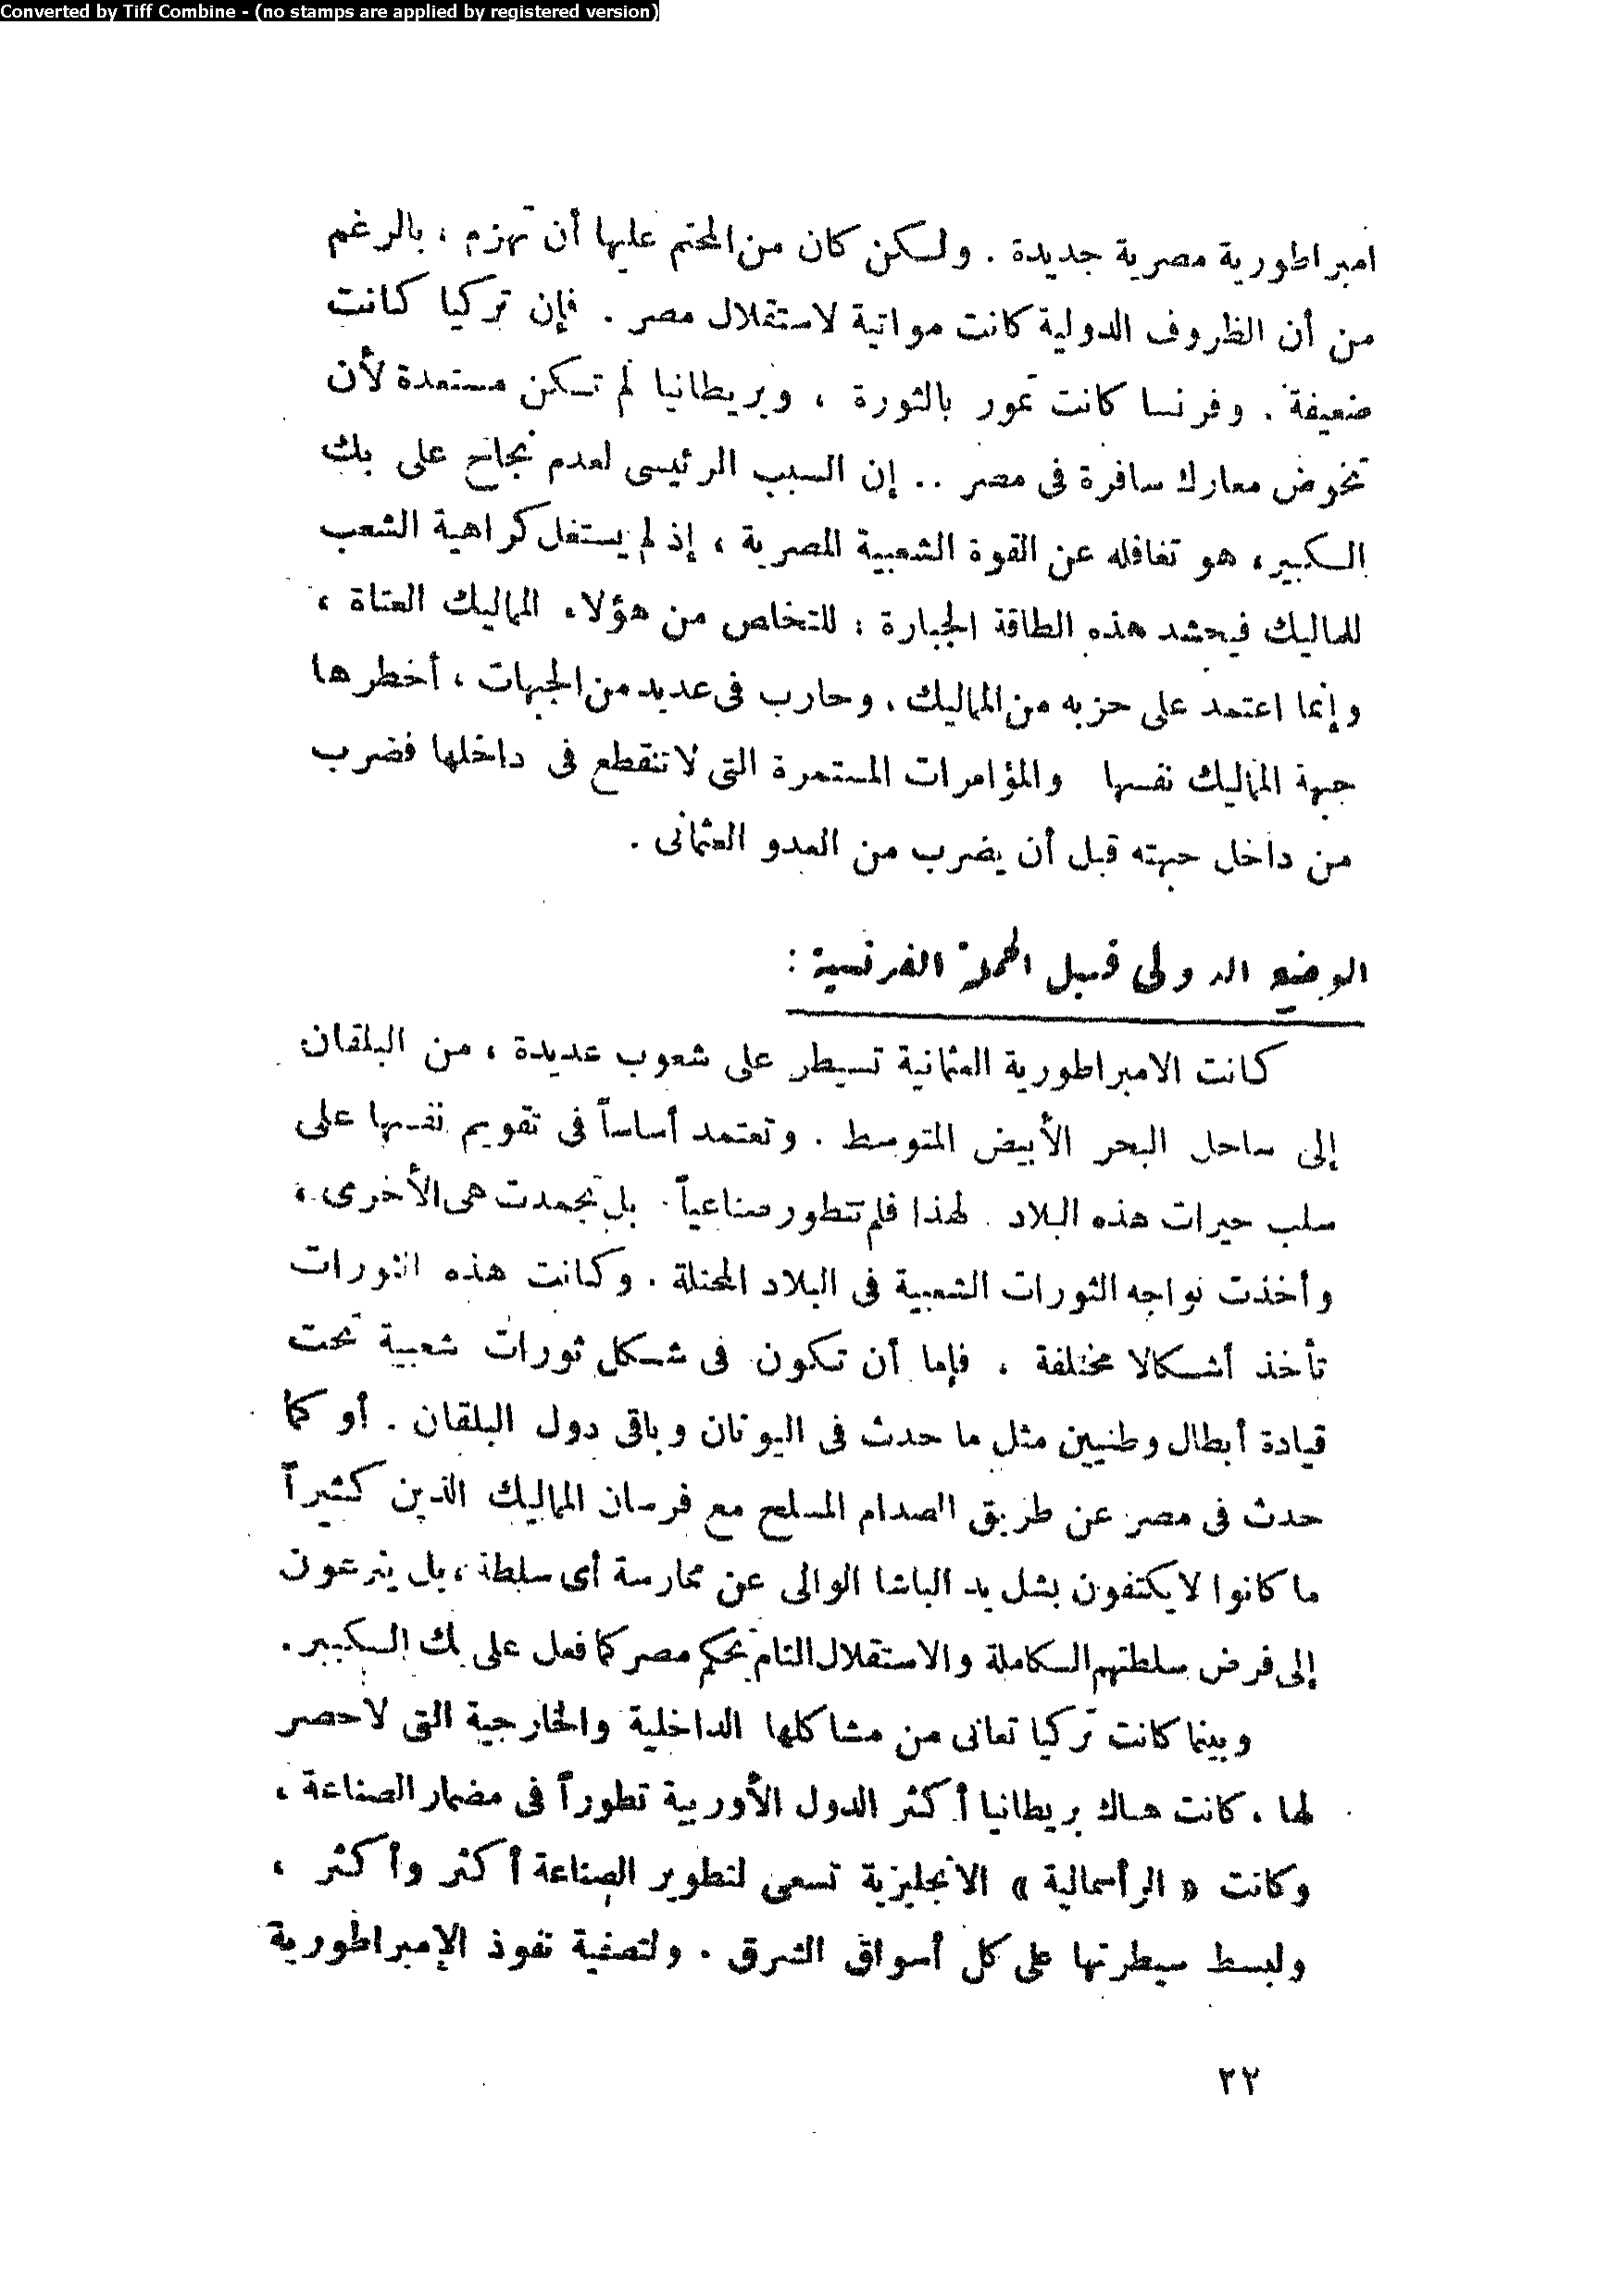 Converted by Tiff Combine - (no stamps are applied by registered version)
امبراطورية مصرية جديدة . ولكن كان من المحتم عليها أن تهزم ، بالرغم
من أن الظروف الدولية كانت مواتية لاستقلال مصر . فإن تركيا كانت
ضعيفة . وفرنسا كانت تمور بالثورة ، وبريطانيا لم تكن مستعدة لأن
تخوض معارك سافرة فى مصر .. إن السبب الرئيسى لعدم نجاح على بك
الكبير ، هو تغافله عن القوة الشعبية المصرية ، إذ لم يستغل كراهية الشعب
للماليك فيحشد هذه الطاقة الجبارة : للتخلص من هؤلاء المماليك العتاة ،
وإنما اعتمد على حزبه من المماليك . وحارب فى عديد من الجبهات ، أخطرها
جبهة المماليك نفسها والمؤامرات المستمرة التى لاتنقطع فى داخلها فضرب
من داخل جبهته قبل أن يضرب من العدو العثمانى .
الوضع الدولى قبيل الحملة الفرنسية :
كانت الامبراطورية العثمانية تسيطر على شعوب عديدة ، من البلقان
إلى ساحل البحر الأبيض المتوسط . وتعتمد أساساً فى تقويم نفسها على
سلب خيرات هذه البلاد . لهذا فلم تتطور صناعياً . بل تجمدت هى الأخرى ،
وأخذت تواجه الثورات الشعبية فى البلاد المحتلة . وكانت هذه الثورات
تأخذ أشكالا مختلفة . فإما أن تكون فى شكل ثورات شعبية تحت
قيادة أبطال وطنيين مثل ما حدث فى اليونان وباقى دول البلقان . أو كما
حدث فى مصر عن طريق الصدام المسلح مع فرسان المماليك الذين كثيراً
ما كانوا لا يكتفون بشل يد الباشا الوالى عن ممارسة أى سلطة ، بل ينزعون
إلى فرض سلطتهم الكاملة والاستقلال التام بحكم مصر كما فعل على بك الكبير .
وبينما كانت تركيا تعانى من مشاكلها الداخلية والخارجية التى لاحصر
لها . كانت هناك بريطانيا أكثر الدول الأوربية تطوراً فى مضمار الصناعة ،
وكانت « الرأسمالية » الانجليزية تسعى لتطوير الصناعة أكثر وأكثر ،
ولبسط سيطرتها على كل أسواق الشرق . ولتصفية نفوذ الإمبراطورية
٢٢